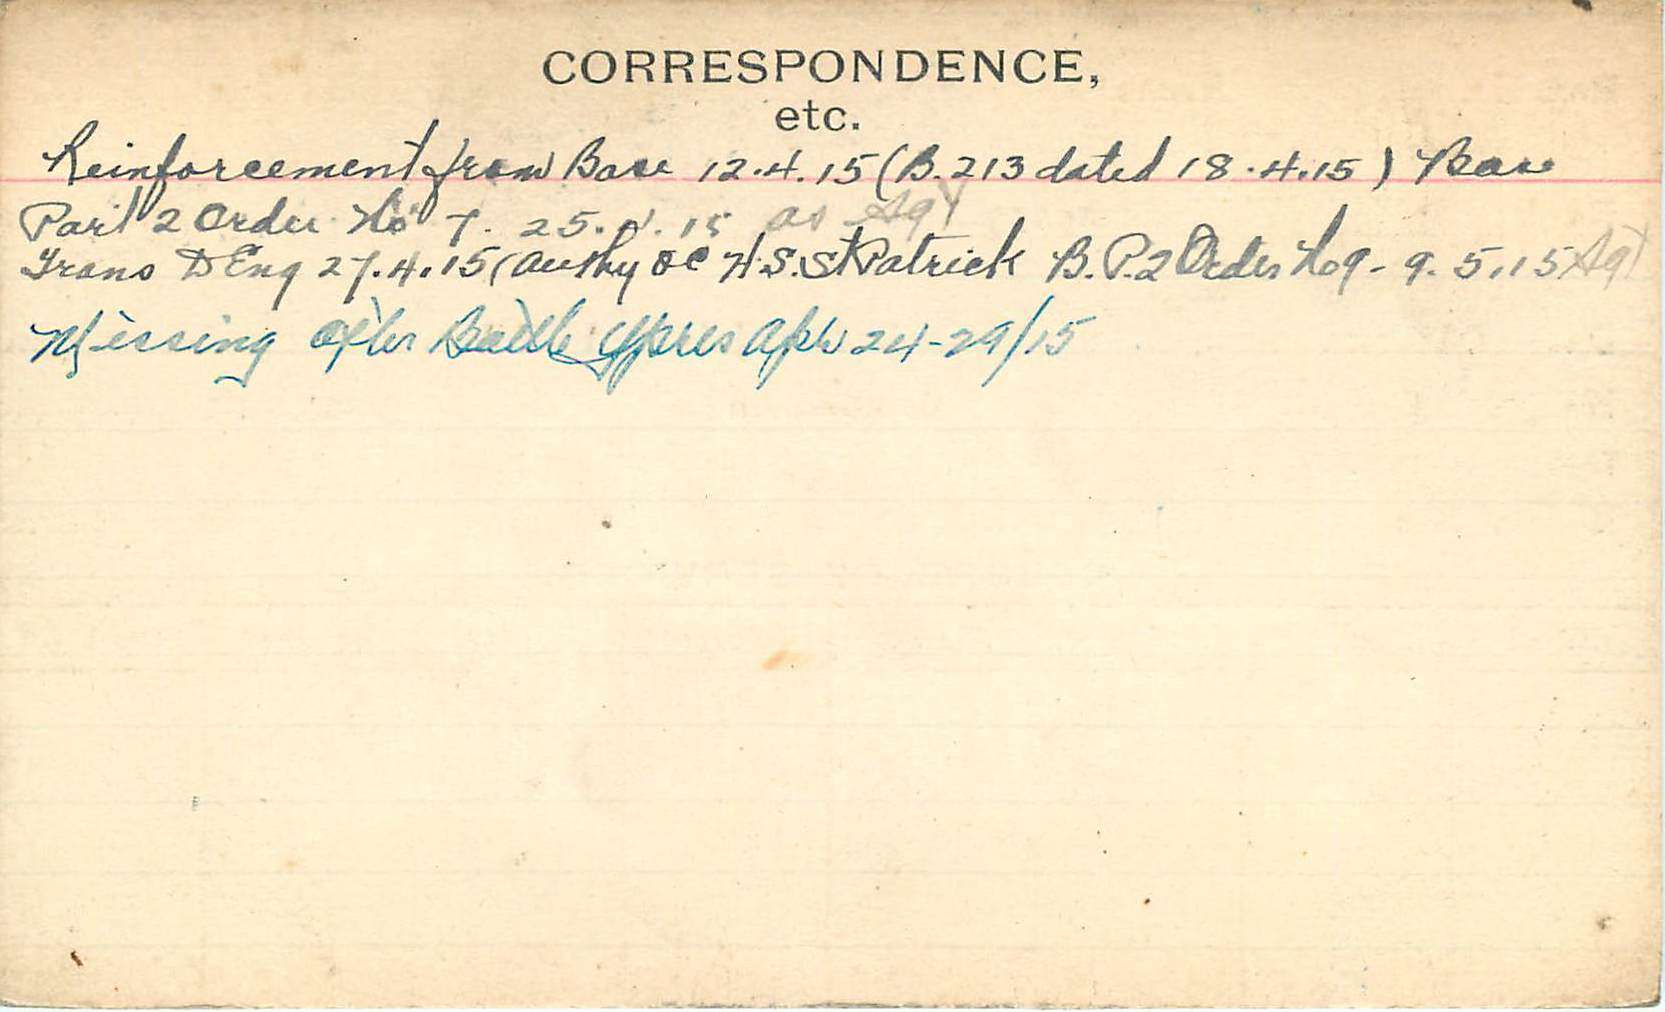 CORRESPONDENCE,
etc.
Reinforcement from Base 12.4.15 (B.213 dated 18.4.15) Base
Part 2 Order No 7. 25.4.15 as Agt
Trans D Eng 27.4.15 (authy OC H.S. St Patrick B.P.2 Order No 9 - 9.5.15 Agt
Missing after Battle Ypres Apr 24-29/15